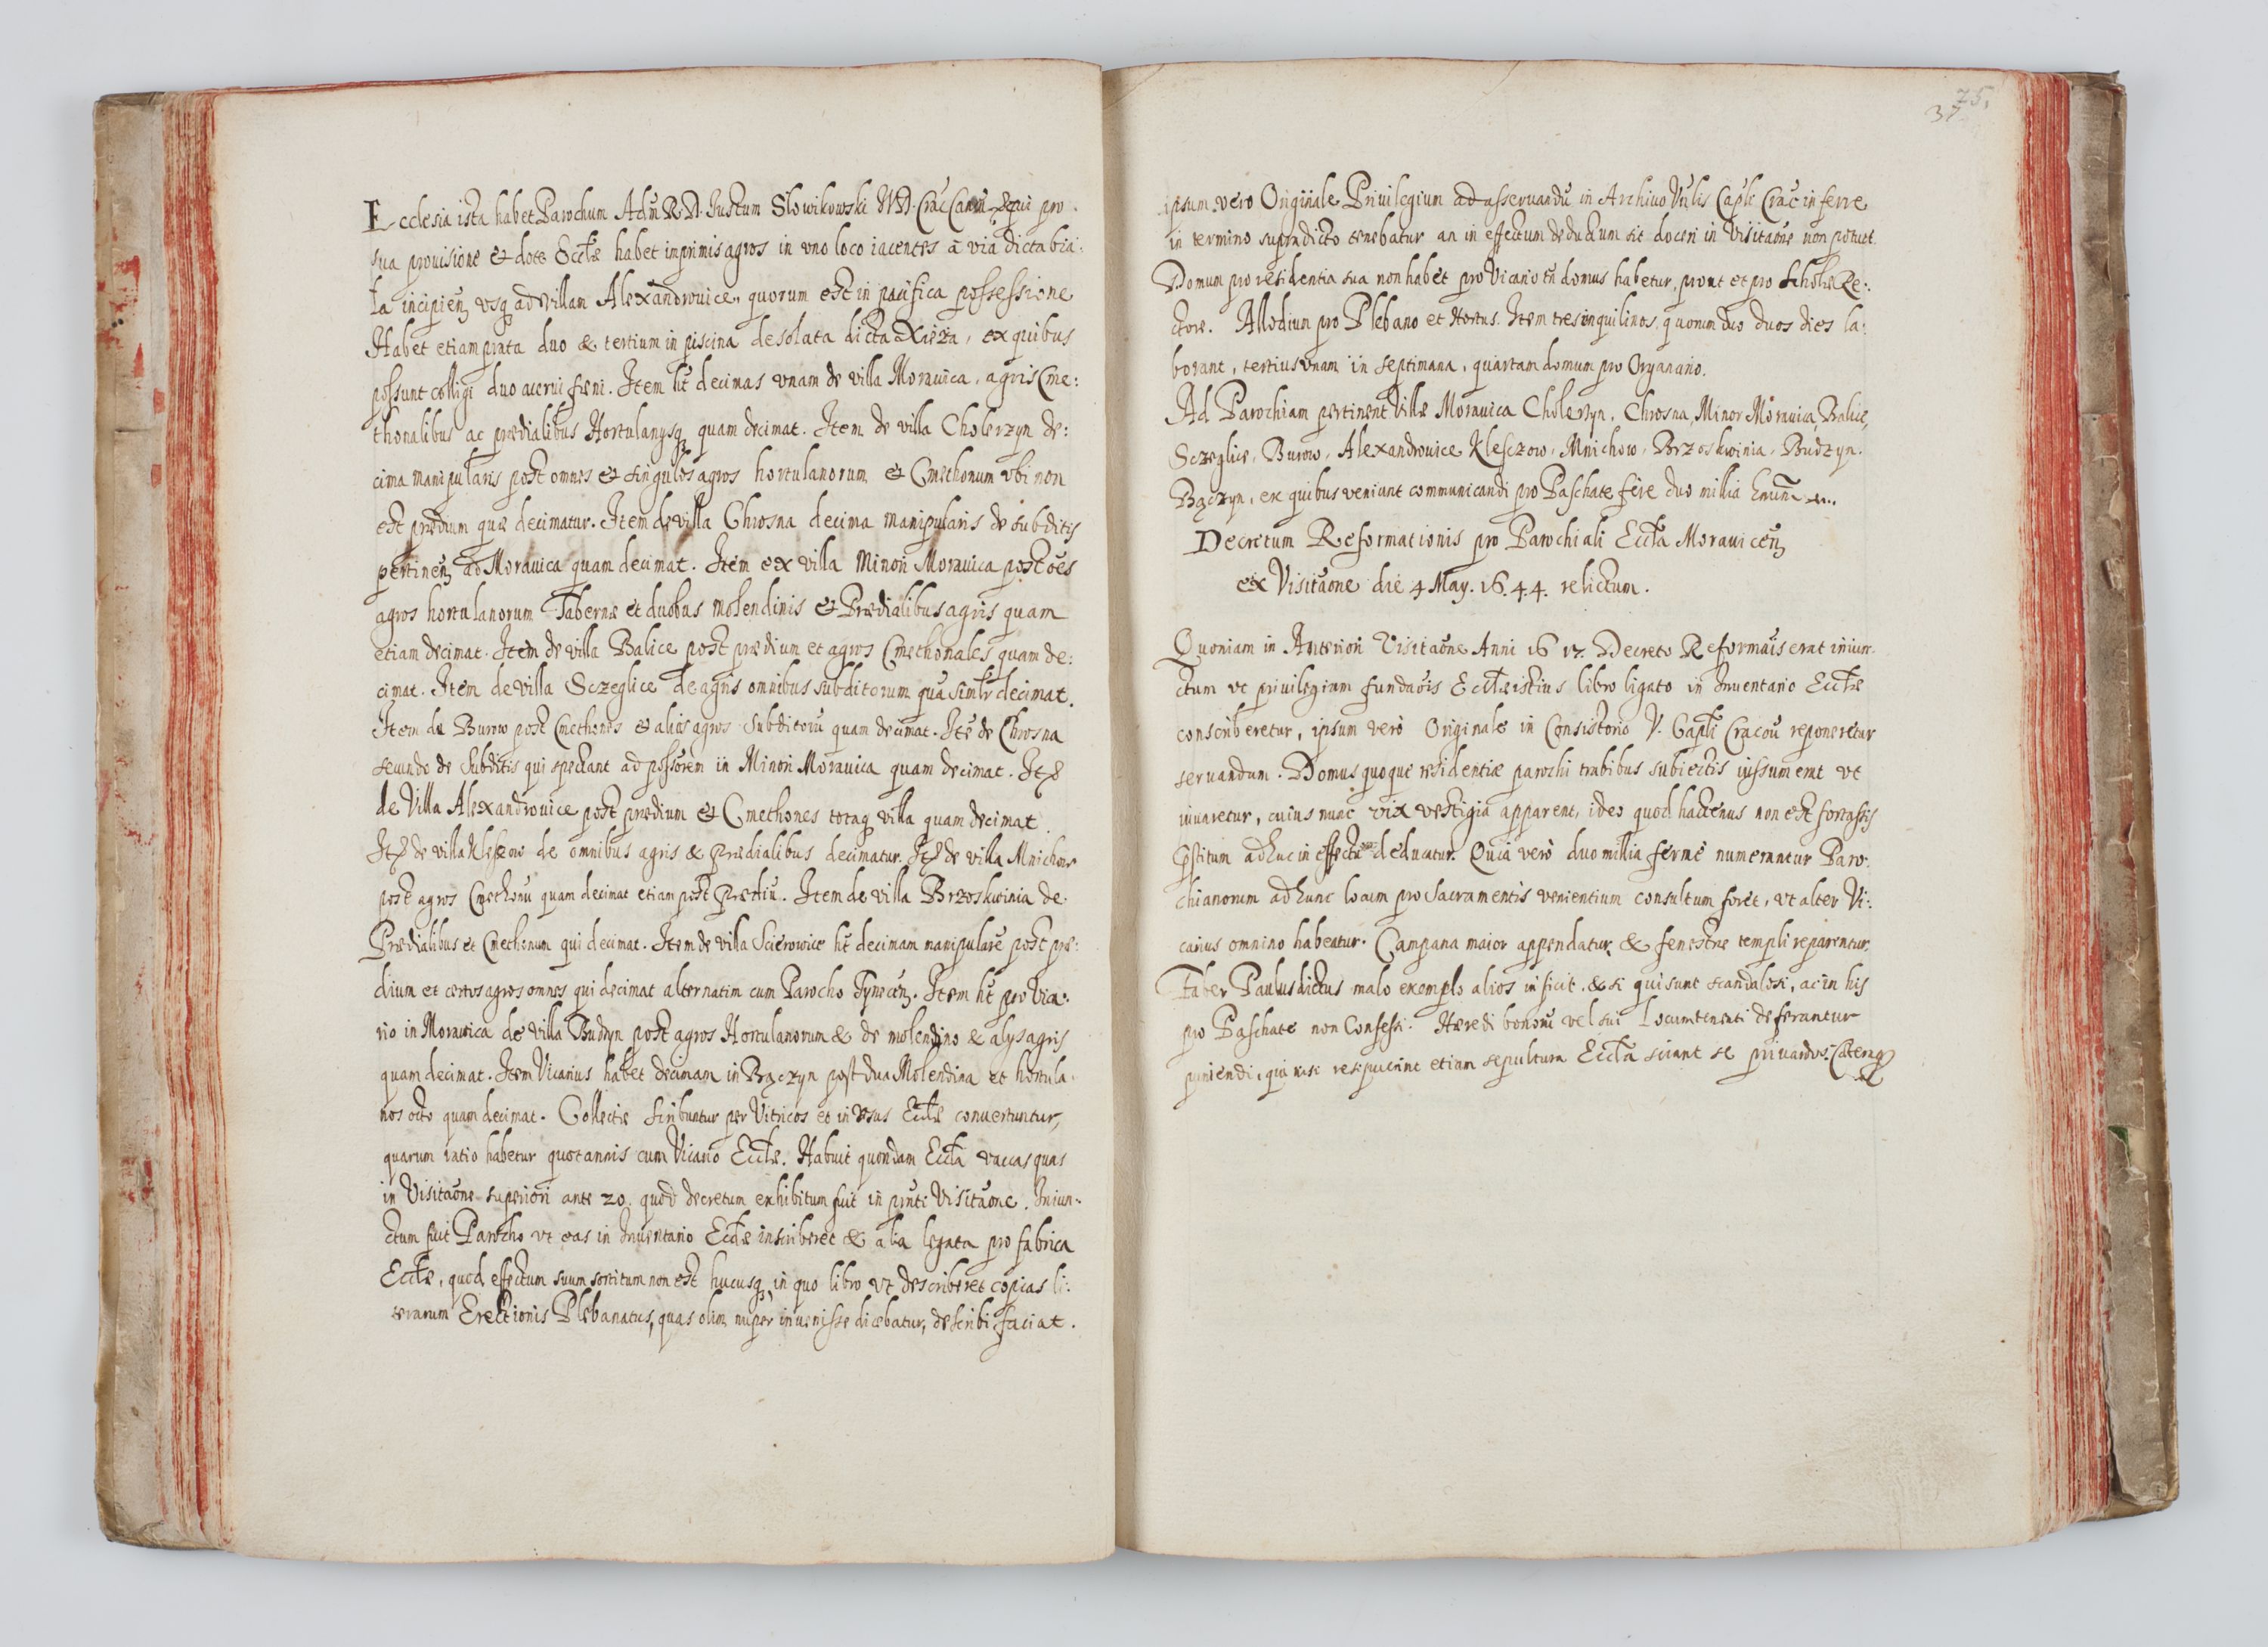 Ecclesia ista habet Parochum Adm R. D. Iustum Slowikowski VJD. Crac Canon qui pro
sua prouisione et dote Eccłæ habet imprimis agros in vno loco iacentes a via dicta bia:
ła incipien vsq ad villam Alexandrouice, quorum est in pacifica possessione
Habet etiam prata duo & tertium in piscina desolata dicta Xięża, ex quibus
possunt colligi duo acerui fœni. Item ht decimas vnam de villa Morauica, agris Cme:
thonalibus ac prædialibus Hortulanysq quam decimat. Item de villa Cholerzyn de:
cima manipularis post omnes et singulos agros hortulanorum et Cmethonum vbi non
est prædium quæ decimatur. Item de villa Chrosna decima manipularis de subditis
pertinen ad Morauica quam decimat. Item ex villa Minori Morauica post oes
agros hortulanorum Tabernæ et duobus molendinis et Prædialibus agris quam
etiam decimat. Item de villa Balice post prædium et agros Cmethonales quam de:
cimat. Item de villa Sczeglice de agris omnibus subditorum quā simlr decimat.
Item de Burow post Cmethones et alios agros subditorū quam decimat. Itē de Chrosna
secundo de subditis qui spectant ad possorem in Minori Morauica quam decimat. Itē
de Villa Alexandrouice post prædium et Cmethones totaq villa quam decimat.
Itē de villa Klesczow de omnibus agris & prædialibus decimatur. Itē de villa Mnichow
post agros Cmethonū quam decimat etiam post Prædiū. Item de villa Brzoskwinia de
Prædialibus et Cmethonum qui decimat. Item de villa Scierowice ht decimam manipularē post præ:
dium et certos agros omnes qui decimat alternatim cum Parocho Tynecen. Item ht pro Vica:
rio in Morauica de villa Budzyn post agros Hortulanorum & de molendino & alys agris
quam decimat. Item Vicarius habet decimam in Bączyn post dua Molendina et hortula:
nos octo quam decimat. Collectæ scribuntur per Vitricos et in vsus Eccłæ conuertuntur,
quarum ratio habetur quotannis cum Vicario Eccłæ. Habuit quondam Eccła vaccas quas
in Visitaōne superiori ante 20. quod decretum exhibitum fuit in pnti Visitaone. Iniun:
ctum fuit Parocho vt eas in Inuentario Eccłæ inscriberet & alia legata pro fabrica
Eccłæ, quod effectum suum sortitum non est hucusq, in quo libro vt describeret copias li:
terarum Erectionis Plebanatus, quas olim nuper inuenisse dicebatur, describi faciat.
25.
37
ipsum vero Originale Priuilegium ad asseruandū in Archiuo Vnlis Capli Crac inferre
in termino supradicto tenebatur an in effectum deductum sit doceri in Visitaōne non potuit.
Domum pro residentia sua non habet pro Vicario tn domus habetur, prout et pro Scholæ Re:
ctore. Allodium pro Plebano et Hortus. Item tres inquilinos, quorum duo duos dies la:
borant, tertius vnam in septimana, quartam domum pro Organario.
Ad Parochiam pertinent Villæ Morauica Cholerzyn, Chrosna, Minor Morauica, Balice,
Sczeglice, Burow, Alexandrouice Klesczow, Mnichow, Brzoskwinia, Budzyn.
Bączyn, ex quibus veniunt communicandi pro Paschate fere duo millia
Decretum Reformationis pro Parochiali Eccła Morauicen
ex Visitaōne die 4 May. 1644. relictum.
Quoniam in Anteriori Visitaōne Anni 1617. Decreto Reformaōis erat iniun:
ctum vt priuilegium fundaōis Eccłæ istius libro ligato in Inuentario Eccłæ
conscriberetur, ipsum verò Originale in Consistorio V. Capli Cracou reponeretur
seruandum. Domus quoque residentiæ parochi trabibus subiectis iussum erat vt
iuuaretur, cuius nunc vix vestigia apparent, ideo quod hactenus non est fortassis
pstitum adhuc in effectū deducatur. Quia verò duo millia fermè numerantur Paro:
chianorum ad hunc locum pro Sacramentis venientium consultum foret, vt alter Vi:
carius omnino habeatur. Campana maior appendatur, & fenestræ templi reparentur.
Faber Paulus dictus malo exemplo alios inficit, & si qui sunt scandalosi, ac in his
pro Paschate non Confessi. Hæredi bonorū vel sui Locumtenenti deferantur
puniendi, qui nisi resipuerint etiam sepultura Eccła sciant se priuandos.